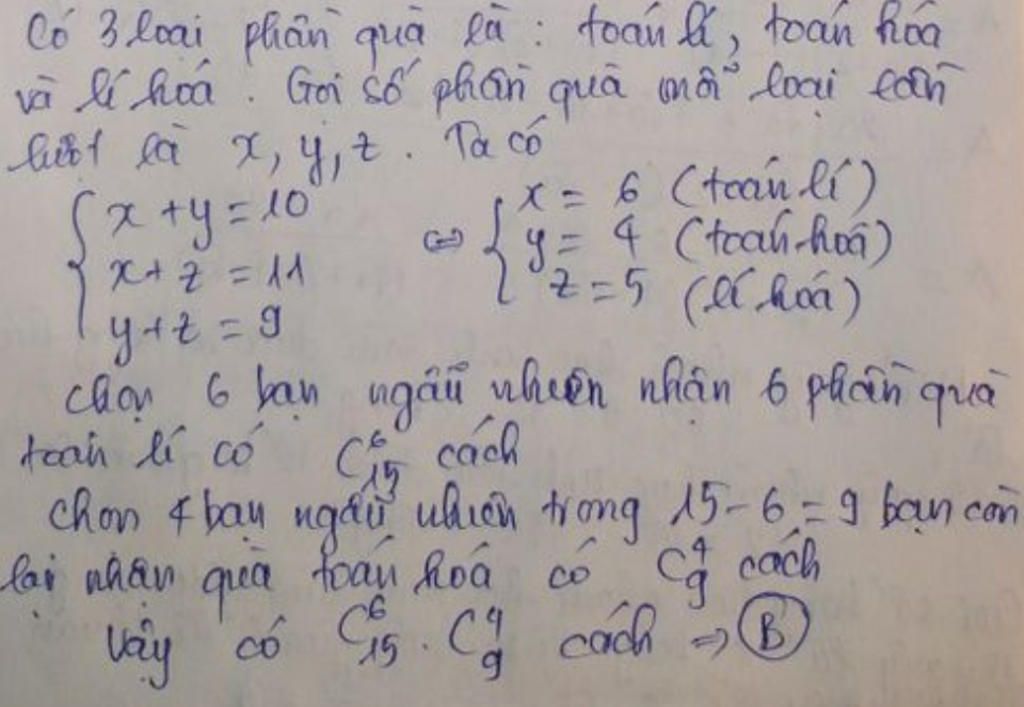 Có 3 loại phần quà là : toán lí, toán hóa
và lí hoá . Gọi số phần quà mỗi loại lần
lượt là x, y, z . Ta có
{ x + y = 10
x + z = 11
y + z = 9
⇔ { x = 6 (toán lí)
y = 4 (toán hoá)
z = 5 (lí hoá)
chọn 6 bạn ngẫu nhiên nhận 6 phần quà
toán lí có C₁₅⁶ cách
chọn 4 bạn ngẫu nhiên trong 15 - 6 = 9 bạn còn
lại nhận quà toán hoá có C₉⁴ cách
Vậy có C₁₅⁶ . C₉⁴ cách ⇒ B